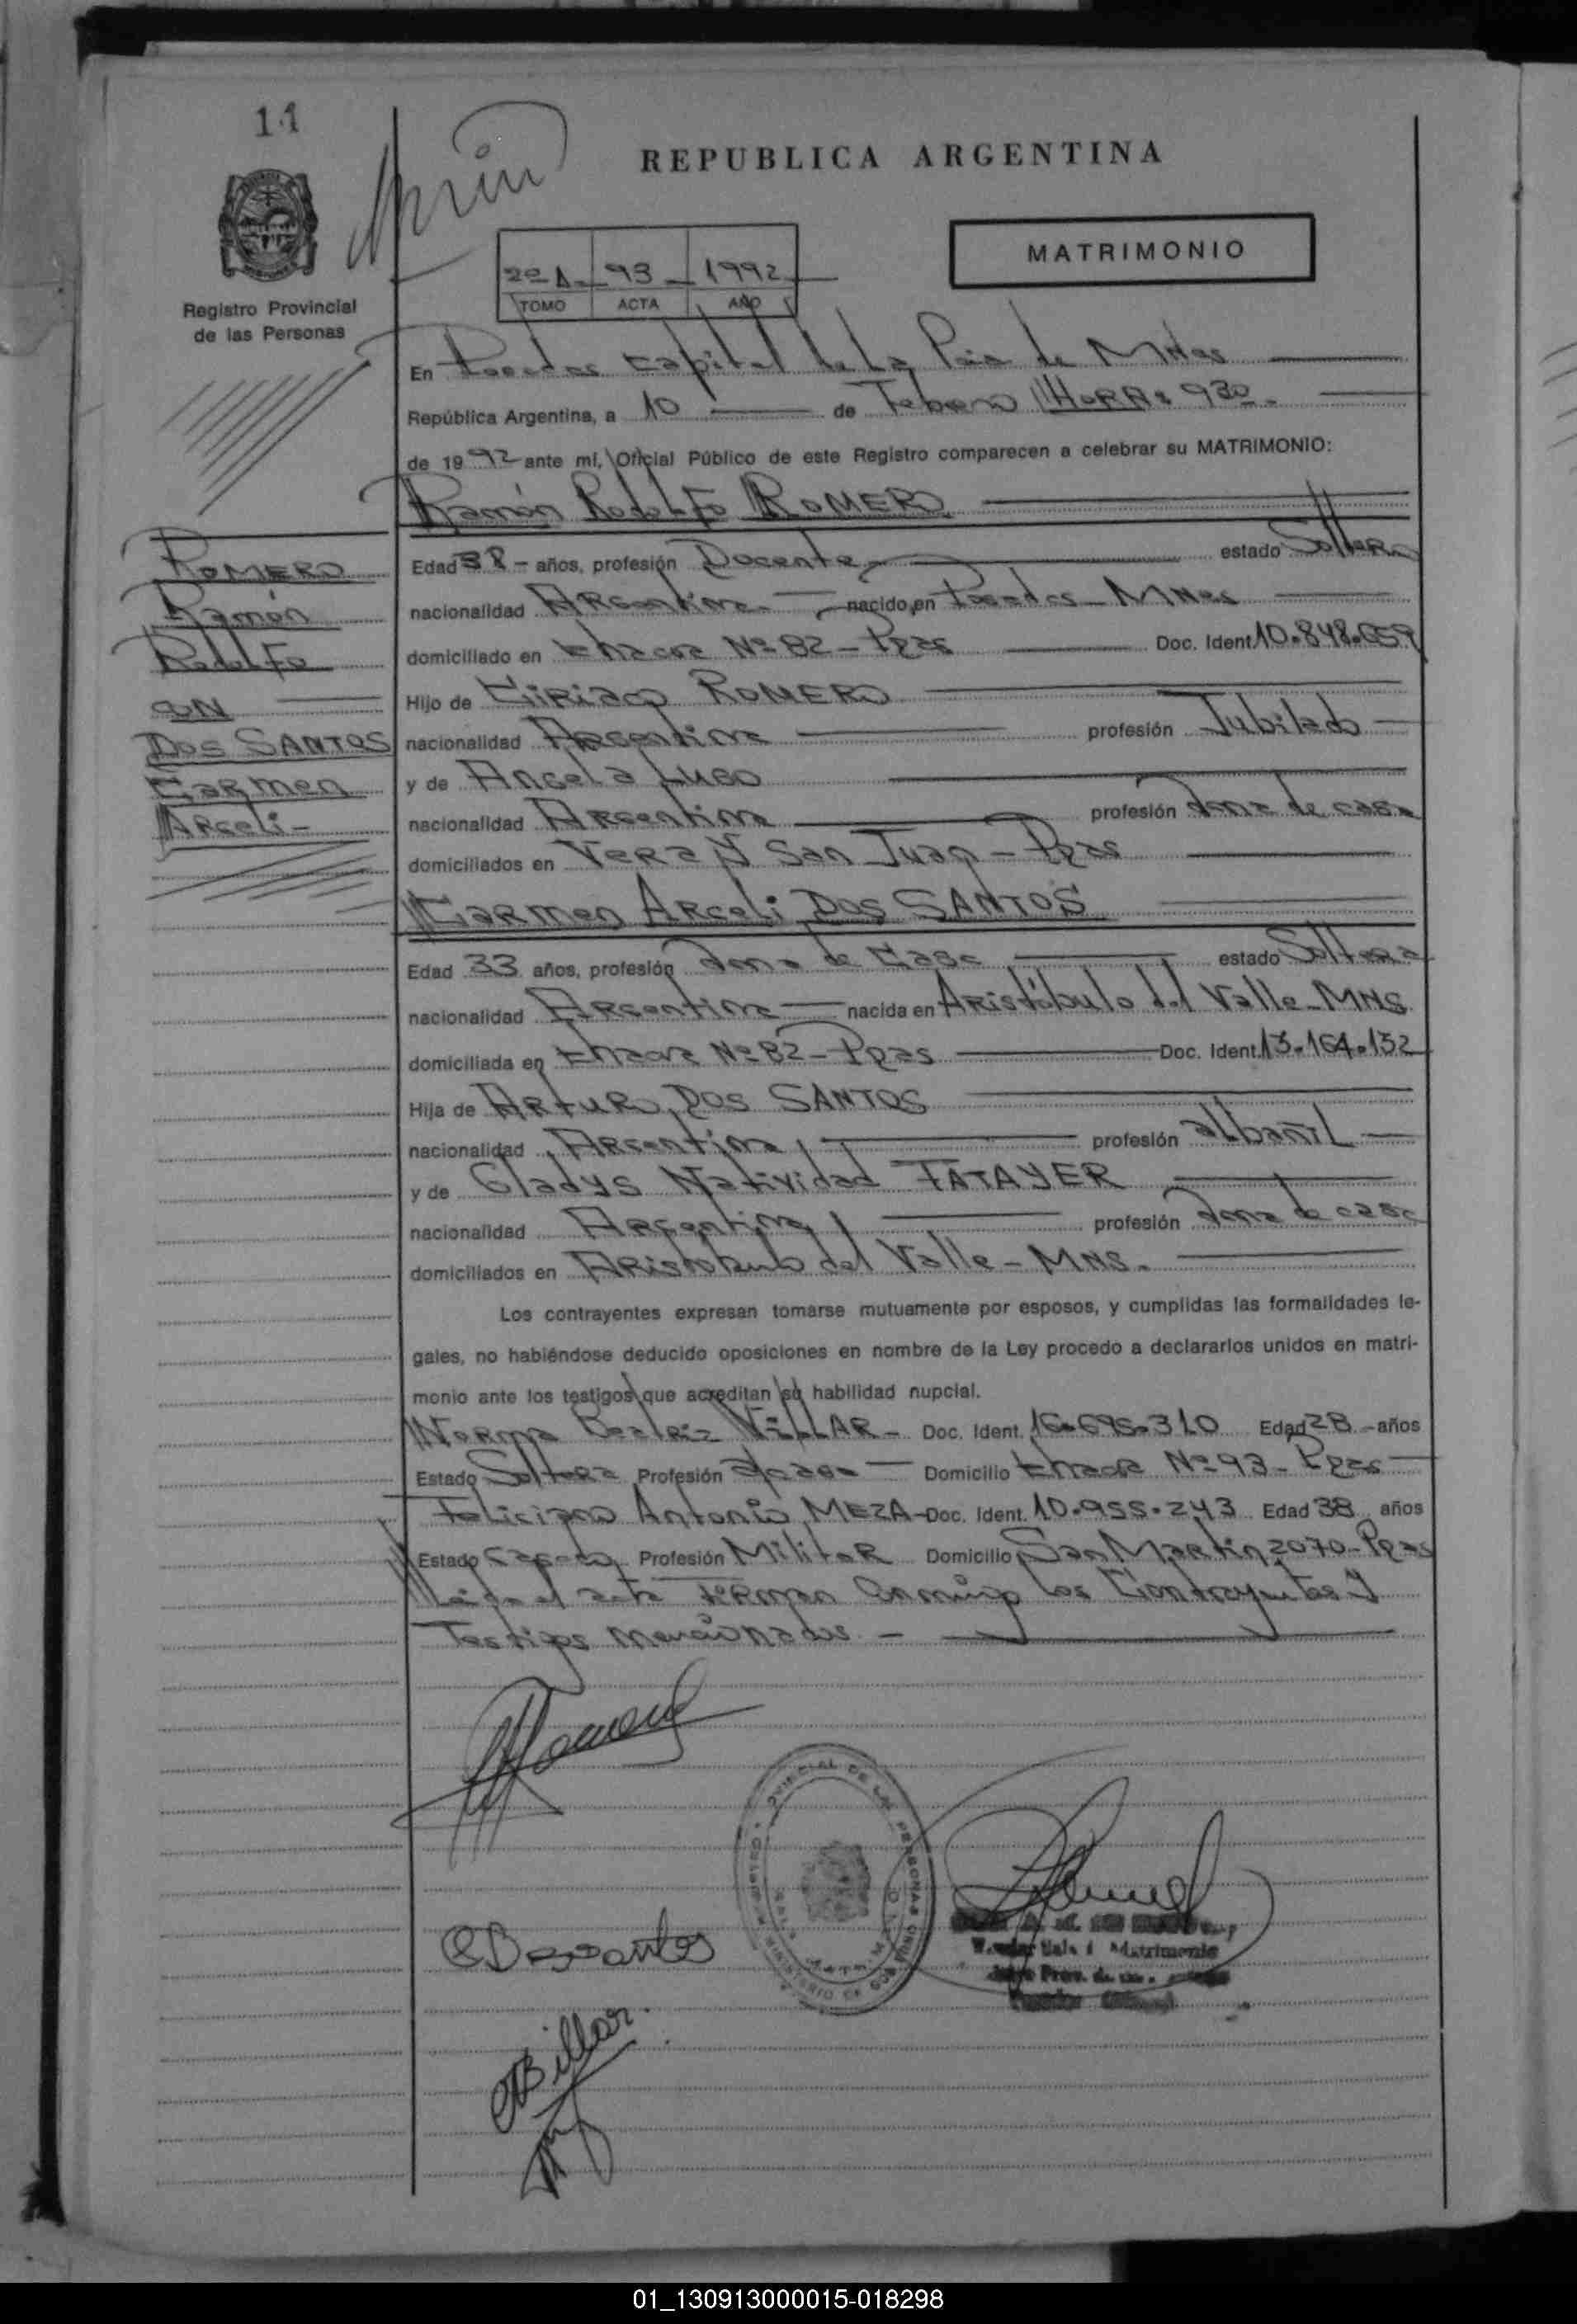 11
REPUBLICA ARGENTINA
MATRIMONIO
2º A - 93 - 1992
TOMO ACTA AÑO
Registro Provincial
de las Personas
En Posadas Capital de La Pcia de MNes
República Argentina, a 10 de Febrero HORA: 930.
de 1992 ante mí, Oficial Público de este Registro comparecen a celebrar su MATRIMONIO:
Ramón Rodolfo ROMERO
ROMERO
Ramón
Rodolfo
CON
DOS SANTOS
Carmen
Arceli-
Edad 38 - años, profesión Docente estado Soltero
nacionalidad Argentina nacido en Posadas - MNes
domiciliado en Chacra Nº 82 - Pdas Doc. Ident. 10.848.059
Hijo de Ciriaco ROMERO
nacionalidad Argentina profesión Jubilado
y de Angela Lugo
nacionalidad Argentina profesión Ama de casa
domiciliados en Vera y San Juan - Pdas
Carmen Arceli DOS SANTOS
Edad 33 años, profesión Ama de Casa estado Soltera
nacionalidad Argentina nacida en Aristóbulo del Valle - MNS
domiciliada en Chacra Nº 82 - Pdas Doc. Ident. 13.164.132
Hija de Arturo DOS SANTOS
nacionalidad Argentina profesión albañil
y de Gladys Natividad FATAYER
nacionalidad Argentina profesión Ama de casa
domiciliados en Aristóbulo del Valle - MNS.
Los contrayentes expresan tomarse mutuamente por esposos, y cumplidas las formalidades le-
gales, no habiéndose deducido oposiciones en nombre de la Ley procedo a declararlos unidos en matri-
monio ante los testigos que acreditan su habilidad nupcial.
Norma Beatriz VILLAR - Doc. Ident. 16.695.310 Edad 28 - años
Estado Soltera Profesión Domicilio Chacra Nº 93 - Pdas
Feliciano Antonio MEZA - Doc. Ident. 10.955.243 Edad 38 años
Estado Casado Profesión Militar Domicilio San Martin 2070 - Pdas
Leída el acta firman Conmigo los Contrayentes y
Testigos mencionados -
01_130913000015-018298